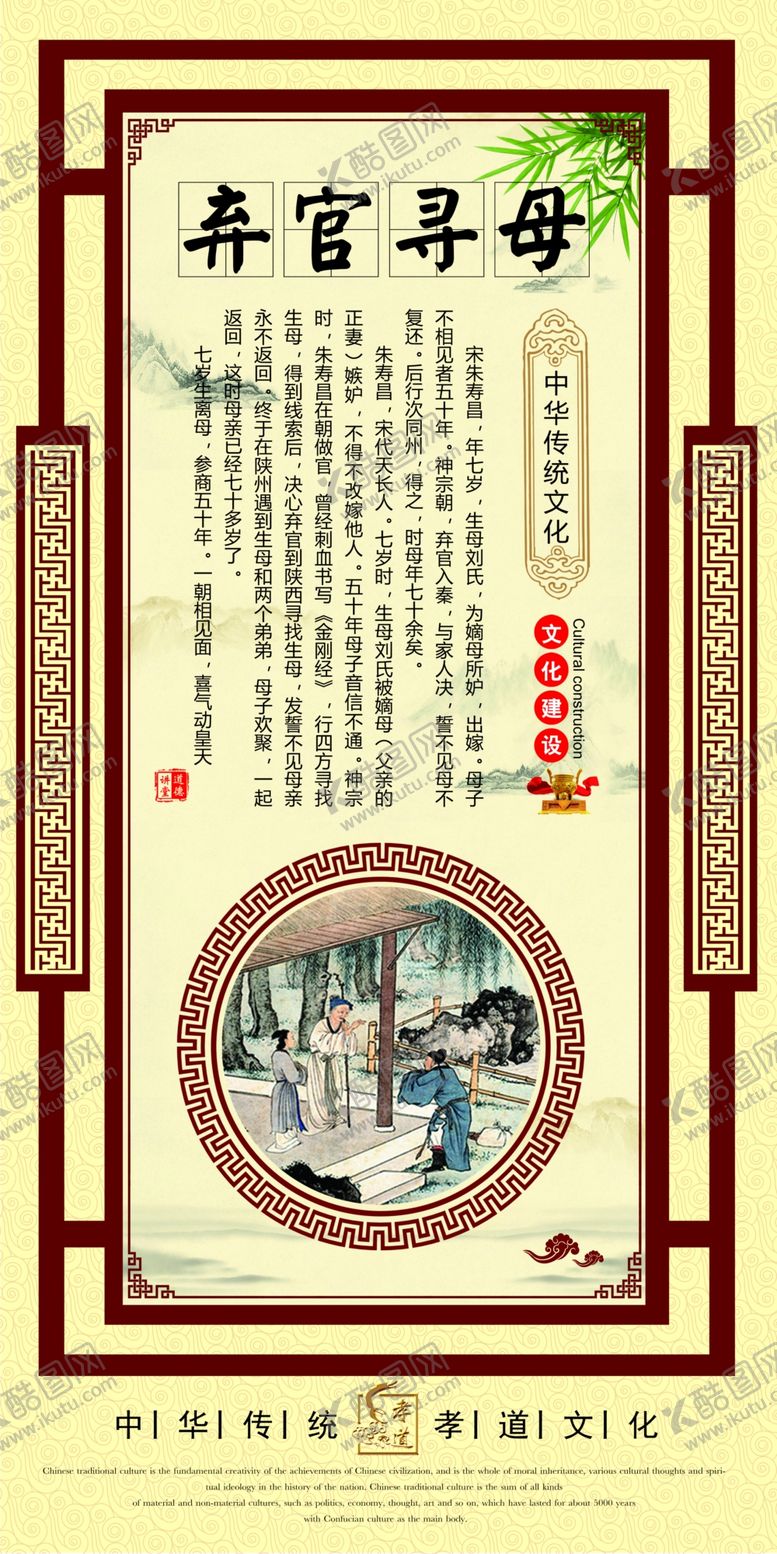 弃官寻母
中华传统文化
文化建设
Cultural construction
宋朱寿昌，年七岁，生母刘氏，为嫡母所妒，出嫁。母子
不相见者五十年。神宗朝，弃官入秦，与家人决，誓不见母不
复还。后行次同州，得之，时母年七十余矣。
朱寿昌，宋代天长人。七岁时，生母刘氏被嫡母（父亲的
正妻）嫉妒，不得不改嫁他人。五十年母子音信不通。神宗
时，朱寿昌在朝做官，曾经刺血书写《金刚经》，行四方寻找
生母，得到线索后，决心弃官到陕西寻找生母，发誓不见母亲
永不返回。终于在陕州遇到生母和两个弟弟，母子欢聚，一起
返回，这时母亲已经七十多岁了。
七岁生离母，参商五十年。一朝相见面，喜气动皇天
道德
讲堂
中华传统
孝道
孝道文化
Chinese traditional culture is the fundamental creativity of the achievements of Chinese civilization, and is the whole of moral inheritance, various cultural thoughts and spiri-
tual ideology in the history of the nation. Chinese traditional culture is the sum of all kinds
of material and non-material cultures, such as politics, economy, thought, art and so on, which have lasted for about 5000 years
with Confucian culture as the main body.
酷图网
www.ikutu.com